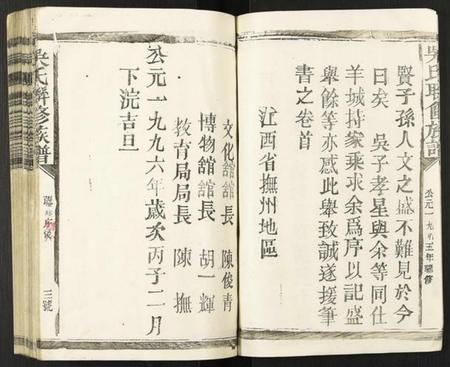 吳氏聯修族譜
公元一九九五年聯修
賢子孫人文之盛不難見於今
日矣　吳子孝星與余等同仕
羊城持家乘求余爲序以記盛
舉餘等亦感此舉致誠遂援筆
書之卷首
江西省撫州地區
文化館館長　陳俊青
博物館館長　胡一輝
教育局局長　陳　撫
公元一九九六年歲次丙子二月
下浣吉旦
吳氏聯修族譜
三號